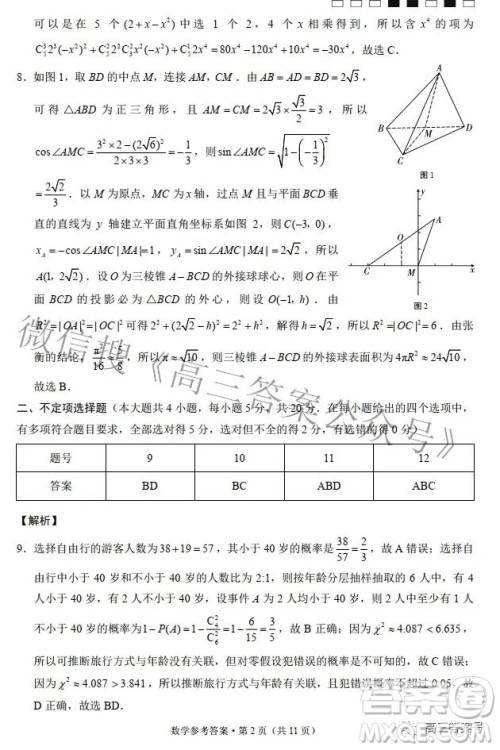 可以是在 5 个(2+x−x²)中选 1 个 2，4 个 x 相乘得到，所以含 x⁴ 的项为
C₅³2³(−x²)²+C₅²2²C₃²x²(−x²)+C₅¹2x⁴=80x⁴−120x⁴+10x⁴=−30x⁴，故选 C．
8．如图 1，取 BD 的中点 M，连接 AM，CM．由 AB=AD=BD=2√3，
可得 △ABD 为正三角形，且 AM=CM=2√3×√3/2=3，所以
cos∠AMC=(3²×2−(2√6)²)/(2×3×3)=−1/3，则 sin∠AMC=√(1−(−1/3)²)
=2√2/3．以 M 为原点，MC 为 x 轴，过点 M 且与平面 BCD 垂
直的直线为 y 轴建立平面直角坐标系如图 2，则 C(−3，0)，
x_A=−cos∠AMC|MA|=1，y_A=sin∠AMC|MA|=2√2，所以
A(1，2√2)．设 O 为三棱锥 A−BCD 的外接球球心，则 O 在平
面 BCD 的投影必为 △BCD 的外心，则设 O(−1，h)．由
R²=|OA|²=|OC|² 可得 2²+(2√2−h)²=2²+h²，解得 h=√2，所以 R²=|OC|²=6．由张
衡的结论，π²/16≈5/8，所以 π≈√10，则三棱锥 A−BCD 的外接球表面积为 4πR²≈24√10，
故选 B．
A
B
M
D
C
图 1
y
A
O
C
M
x
图 2
二、不定项选择题（本大题共 4 小题，每小题 5 分，共 20 分．在每小题给出的四个选项中，
有多项符合题目要求，全部选对得 5 分，选对但不全的得 2 分，有选错的得 0 分）
题号 9 10 11 12
答案 BD BC ABD ABC
【解析】
9．选择自由行的游客人数为 38+19=57，其小于 40 岁的概率是 38/57=2/3，故 A 错误；选择自
由行中小于 40 岁和不小于 40 岁的人数比为 2:1，则按年龄分层抽样抽取的 6 人中，有 4
人小于 40 岁，有 2 人不小于 40 岁，设事件 A 为 2 人均小于 40 岁，所以 2 人中至少 1 人
不小于 40 岁的概率为 1−P(A)=1−C₄²/C₆²=1−6/15=3/5，故 B 正确；因为 χ²≈4.087<6.635，
所以不可推断旅行方式与年龄没有关联，但对零假设犯错误的概率是不可知的，故 C 错误；
因为 χ²≈4.087>3.841，所以可推断旅行方式与年龄有关联，且犯错误概率不超过 0.05，故
D 正确，故选 BD．
数学参考答案·第 2 页（共 11 页）
微信搜《高三答案公众号》